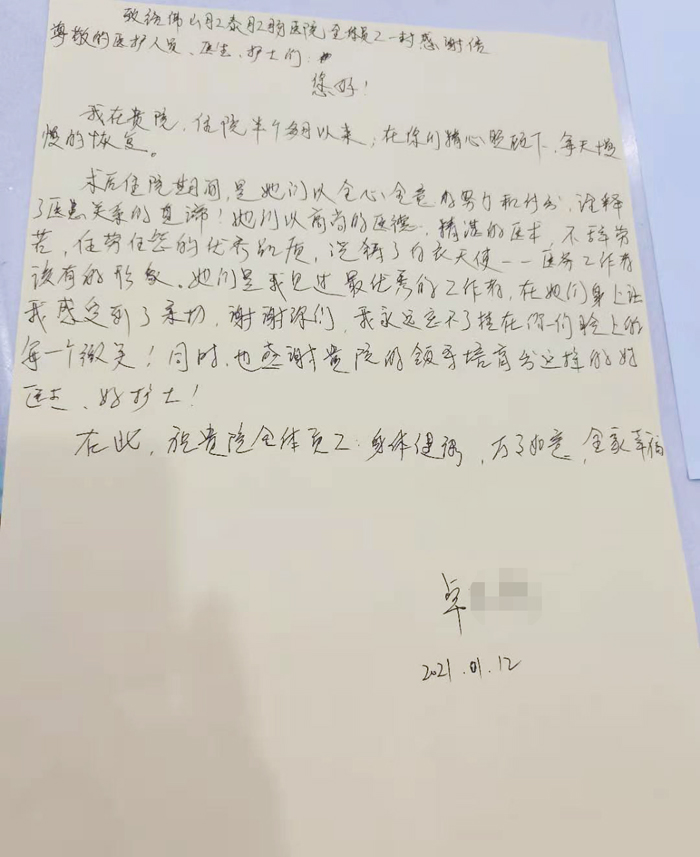 致给佛山肛泰肛肠医院全体员工一封感谢信
尊敬的医护人员、医生、护士们：
您好！
我在贵院，住院半个多月以来，在你们精心照顾下，每天慢
慢的恢复。
术后住院期间，是她们以全心全意的努力和付出，诠释
了医患关系的真谛！她们以高尚的医德，精湛的医术，不辞劳
苦，任劳任怨的优秀品质，诠释了白衣天使——医务工作者
该有的形象。她们是我见过最优秀的工作者，在她们身上让
我感受到了亲切，谢谢你们，我永远忘不了挂在你们脸上的
每一个微笑！同时，也感谢贵院的领导培育出这样的好
医生、好护士！
在此，祝贵院全体员工：身体健康，万事如意，全家幸福
卓
2021.01.12